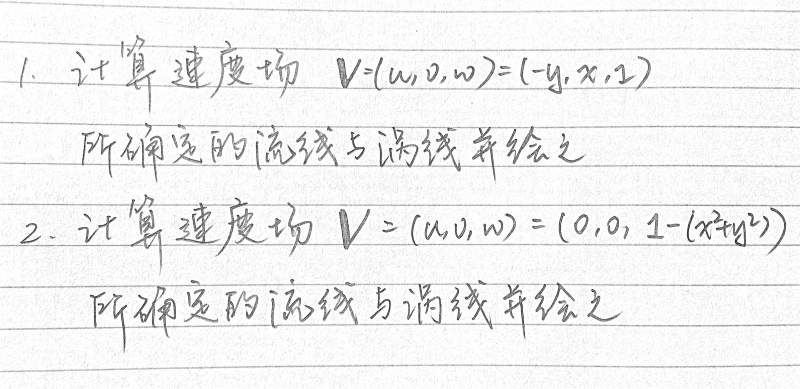 1. 计算速度场 V=(u,v,w)=(-y,x,1)
所确定的流线与涡线并绘之
2. 计算速度场 V=(u,v,w)=(0,0,1-(x²+y²))
所确定的流线与涡线并绘之